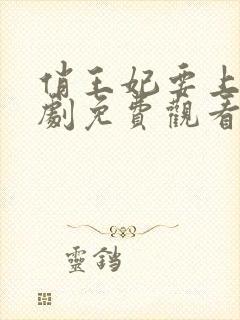 俏王妃要上
劇免費觀看
靈鐺